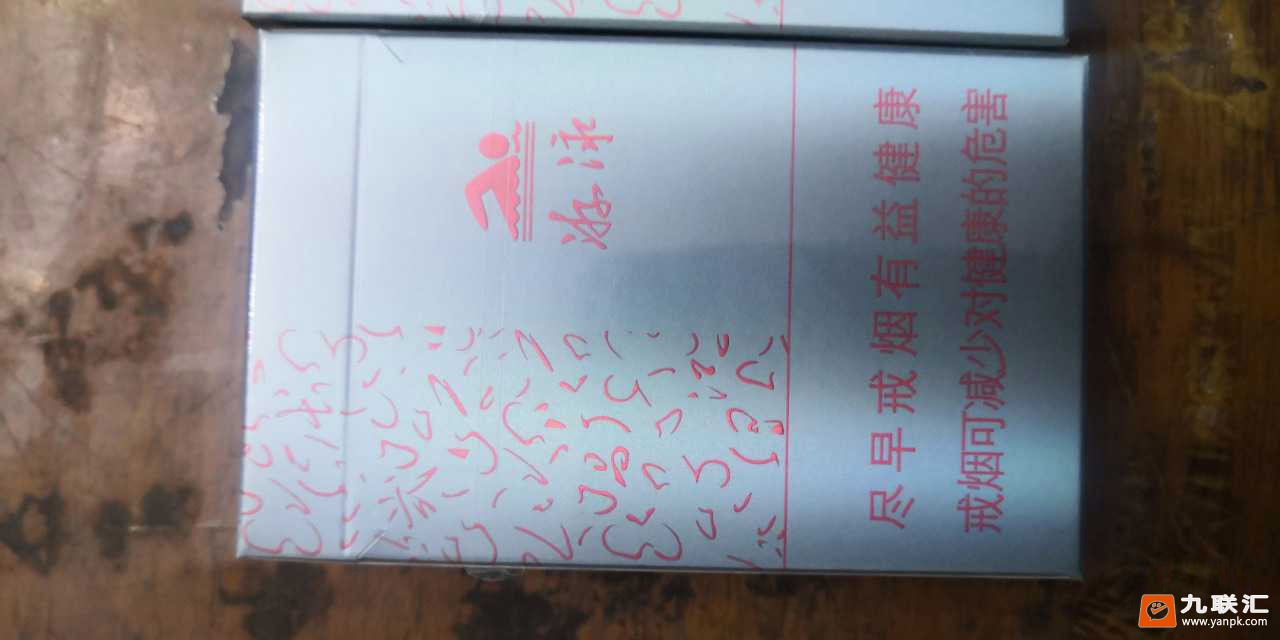 游泳
尽早戒烟有益健康
戒烟可减少对健康的危害
九联汇
www.yanpk.com